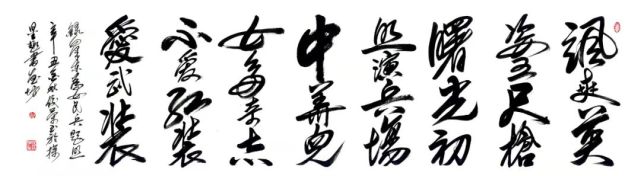 颯爽英
姿五尺槍
曙光初
照演兵場
中華兒
女多奇志
不愛紅裝
愛武裝
為女民兵題照
辛丑